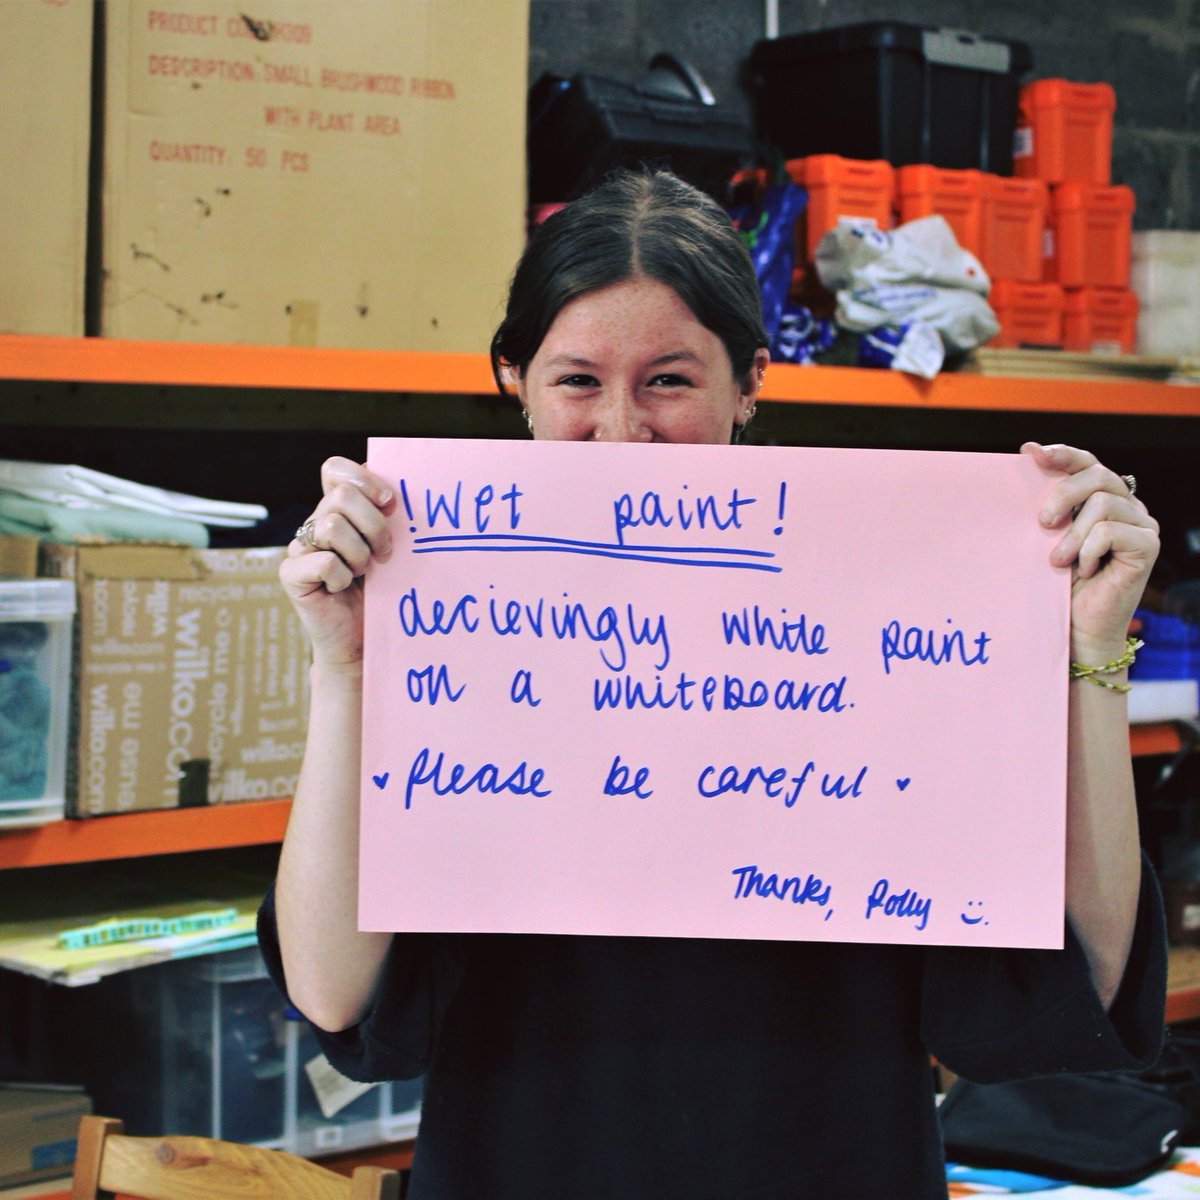 PRODUCT
DESCRIPTION: SMALL BRUSHWOOD RIBBON
WITH PLANT AREA
QUANTITY: 50 PCS
!Wet paint!
decievingly white paint
on a whiteboard.
♥ please be careful ♥
Thanks, Polly :)
wilko.com
recycle me
wilko
reuse me